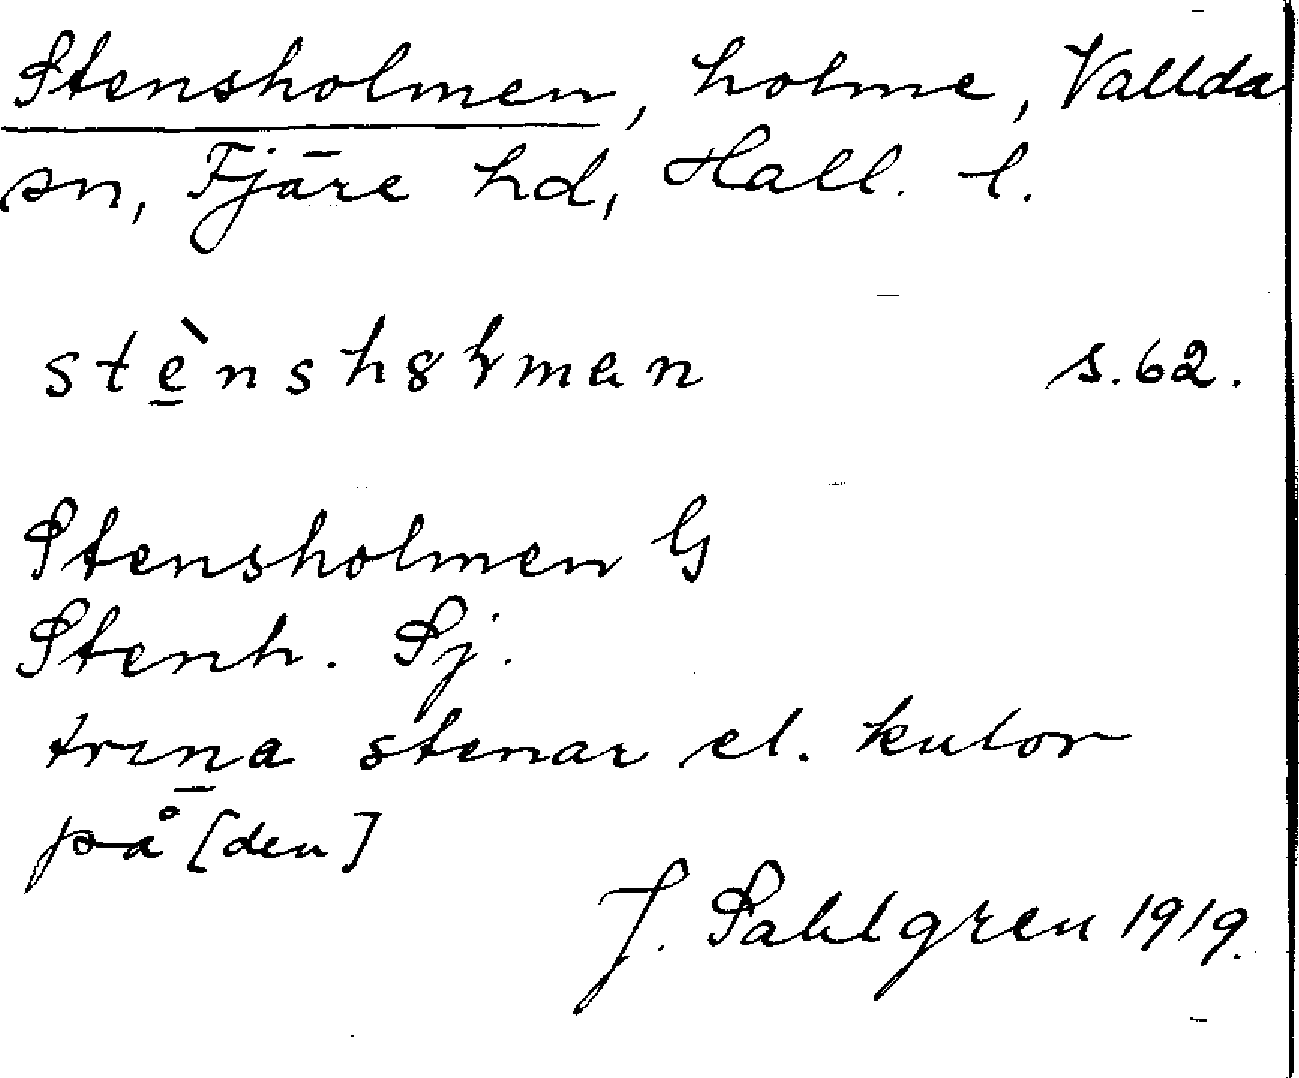 Stensholmen, holme, Vallda
sn, Fjäre hd, Hall. l.
stènsh8ɫman s.62.
Stensholmen G
Stenh. Sj.
trina stenar el. kulor
på [den]
J. Sahlgren 1919.